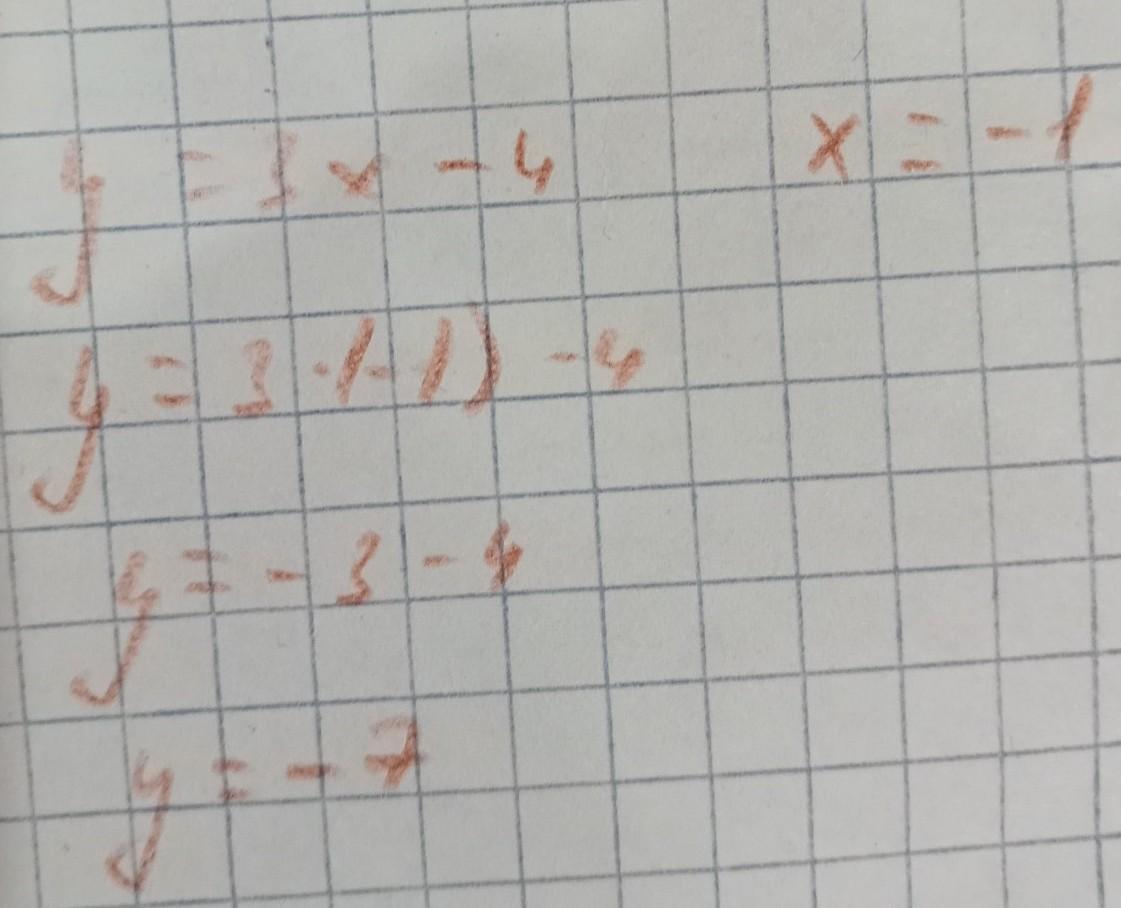 y = 3x - 4 x = -1
y = 3 · (-1) - 4
y = -3 - 4
y = -7